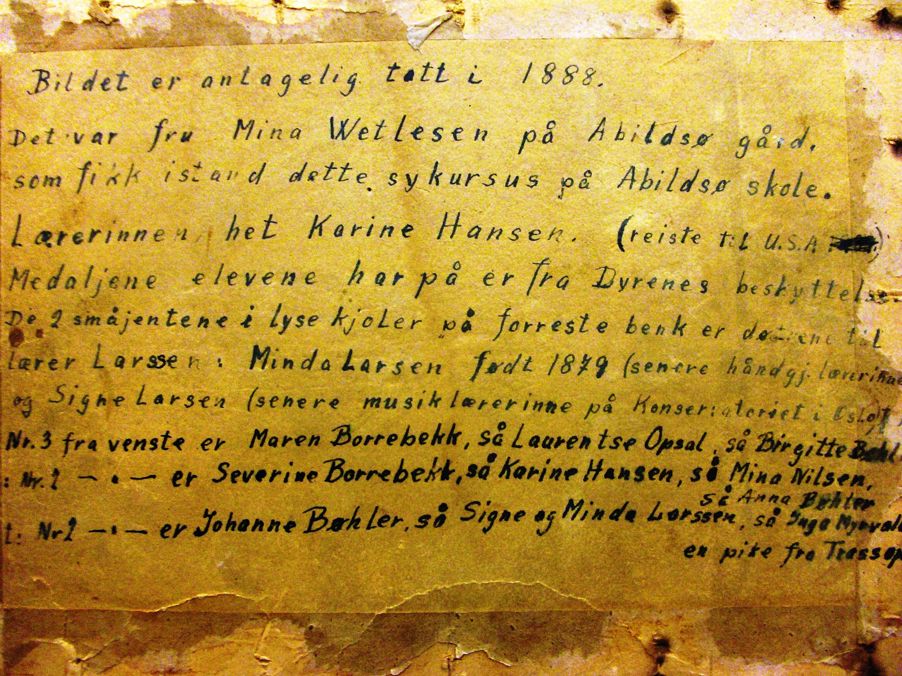 Bildet er antagelig tatt i 1888.
Det var fru Mina Wetlesen på Abildsø gård,
som fikk istand dette sykursus på Abildsø skole.
Lærerinnen het Karine Hansen. (reiste til U.S.A.)
Medaljene elevene har på er fra Dyrenes beskyttelse
De 2 småjentene i lyse kjoler på forreste benk er døtrene til
lærer Larssen: Minda Larsen født 1879 (senere håndgj. lærerinne
og Signe Larsen (senere musiklærerinne på Konservatoriet i Oslo),
Nr. 3 fra venste er Maren Borrebekk, så Laurentse Opsal, så Birgitte Bøhl
: Nr. 1 — " — er Severine Borrebekk, så Karine Hansen, så Mina Nilsen,
så Anna Bøhler
t: Nr 1 — " — er Johanne Bøhler, så Signe og Minda Larssen, så Inga Myrvold
en pike fra Trassop